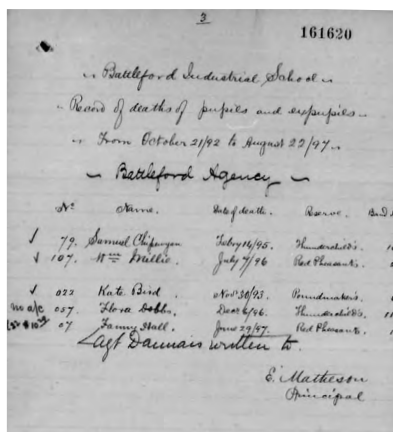 3
161620
Battleford Industrial School
Record of deaths of pupils and expupils
From October 21/92 to August 22/97
Battleford Agency
No. Name. Date of death. Reserve. Band
79. Samuel Feby 16/95. Thunderchild's.
107. Wm Millie. July 7/96 Red Pheasant's.
022 Kate Bird. Nov 30/93. Poundmaker's.
057. Flora Dec 6/96. Thunderchild's.
07 Fanny Hall. June 29/97. Red Pheasant's.
Agt Daunais written to.
E. Matheson
Principal